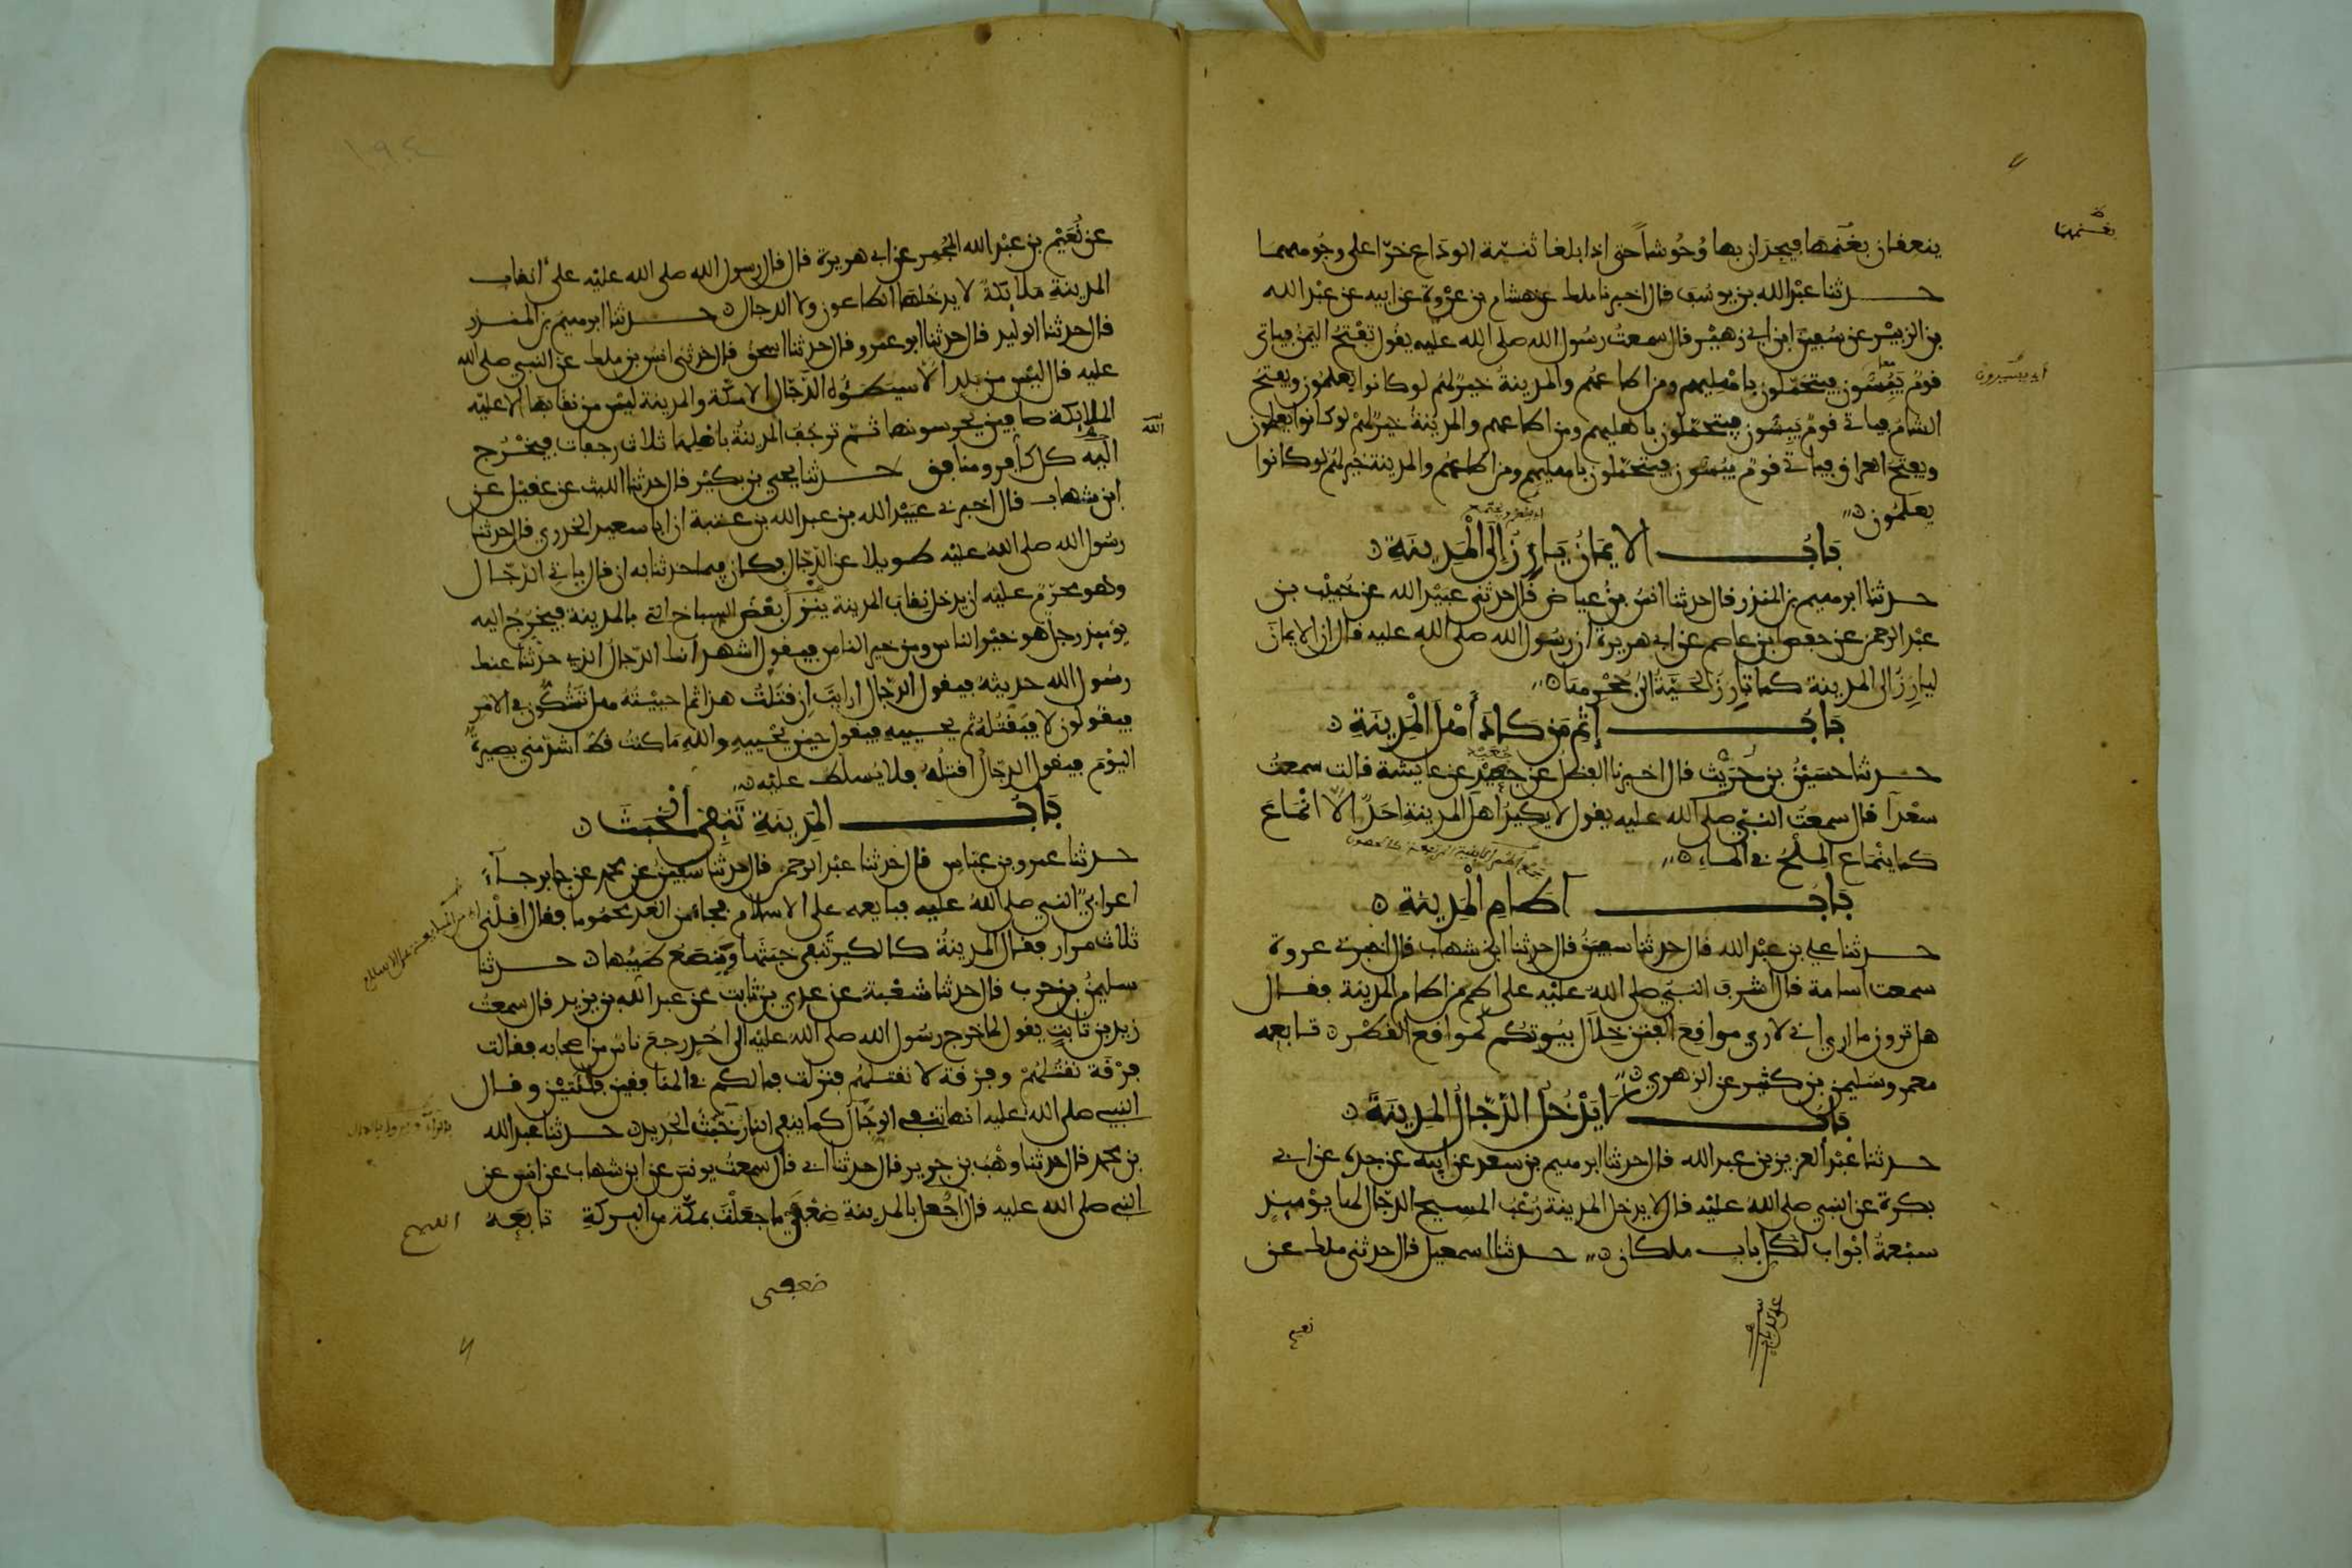 ينعفان بغنمها فيجدان بها وُحُوشاً حتى اذا بلغا ثنيّة الوداع خرّا على وجوههما
بغنمهما
حـدثنا عبْد الله بن يوسُف قال اخبرنا ملك عن هشام بن عرْوة عن ابيه عن عبْد الله
بن الزبيْر عن سُفين ابن ابي زهيْر قال سمعتُ رسُول الله صلى الله عليه يقُول تفْتحُ اليَمنُ فياتي
قومٌ يَبُسُّون فيتحمّلون باهْليهم ومن اطاعهُم والمدينةُ خيرٌ لهُم لو كانوا يعلمُون ويفتحُ
الشامُ فياتي قومٌ يَبِسُّون فيتحمّلون باهليهم ومن اطاعهم والمدينةُ خيرٌ لهمْ لو كانوا يعلمون
ويفتح العراق فياتي قومٌ يبُسّون فيتحمّلون باهليهم ومن اطاعهُم والمدينة خيرٌ لهُم لو كانوا
يعلمُون
بَابُ الايمَانُ يَارِزُ اِلَى الْمَدِينَةِ
حـدثنا ابرهيم بن المنذر قال حدثنا انسُ بنُ عياض قال حدثنى عبيْد الله عن خُبيْب بن
عبْد الرحمن عن حفص بن عاصم عن ابي هريرة ان رسُول الله صلى الله عليه قال ان الايمانَ
ليارِزُ الى المدينة كما تارِزُ الحَيّةُ الى جُحْرِها
بَابُ إِثْمِ مَن كَادَ أَهْلَ الْمَدِينَةِ
حـدثنا حسَيْنُ بن حُرَيْث قال اخبرنا الفضلُ عن جعيْد عن عايشة قالت سمعتُ
سعْداً قال سمعتُ النبيَّ صلى الله عليه يقول لا يكيدُ اهلَ المدينةِ احدٌ الا انْمَاعَ
كما ينْمَاع الملْحُ في الماء
بَابُ آطَامِ الْمَدِينَةِ
حـدثنا علي بن عبْد الله قال حدثنا سفينُ قال حدثنا ابن شهاب قال اخبرني عروة
سمعت اسامة قال اشرف النبيّ صلى اللهُ عليْه على اطم من اطام المدينة فقـال
هل ترون ما ارى اني لارى مواقِعَ الفتن خِلاَل بيُوتكُم كمواقع القطْر تابعه
معمر وسليمن بن كثير عن الزهرى
بابُ لا يَدْخُلُ الدّجّالُ المدِينَةَ
حـدثنا عبْد العزيز بن عبد الله قال حدثنا ابرهيم بن سعد عن ابيه عن جده عن ابي
بكرة عن النبي صلى اللهُ عليْه قال لا يدخل المدينةَ رُعْبُ المسيح الدجّال لها يوْميذ
سبْعةُ ابْواب لكل باب ملكان حـدثنا اسمعيل قال حدثنى ملك عن
نعيم
عن نُعَيْم بن عبْد الله المُجْمِر عن ابي هريرة قال قال رسول الله صلى الله عليْه على انقاب
المدينة ملايكةٌ لا يدخلها الطاعون ولا الدجال حـدثنا ابرهيمُ بن المنذر
قال حدثنا الوليد قال حدثنا ابو عمرو قال حدثنا اسحقُ قال حدثنى انسُ بن ملك عن النبي صلى الله
عليه قال ليس من بلد الا سيَطؤُه الدّجّال الا مكّة والمدينة ليْس من نقابها الا عليْه
الملايكةُ صافين يحرسونها ثمّ ترجُف المدينةُ باهْلِها ثلاث رجفات فيخْرُج
الله
اليْه كل كافر ومنافق حـدثنا يحيى بن بكيْر قال حدثنا الليث عن عقيْل عن
ابن شهاب قال اخبرني عبيْد الله بن عبد الله بن عتبة ان ابا سعيد الخدري قال حدثنا
رسُول الله صلى اللهُ عليْه طويلا عن الدّجّال فكان فيما حدثنا به ان قال ياتي الدجّـال
وهو محرّمٌ عليْه ان يدخل نِقابَ المدينة ينزلُ بعْضَ السباخ التى بالمدينة فيخْرُجُ اليه
يوْميذ رجلٌ هو خيْر الناس او من خير الناس فيقول اشهدُ انك الدجّال الذي حدّثنا عنك
رسُول الله حديثهُ فيقول الدجّال ارايْتَ ان قتَلتُ هذا ثم احييْتهُ هل تَشُكّونَ في الامْر
فيقُولون لا فيَقْتُلهُ ثم يحييه فيقول حين يُحْييهِ والله ما كنتُ قطُّ اشدّ منى بصيرة
اليوْمَ فيقول الدجّال اقتلهُ فلا يُسلّط عليْه
بَابُ المدِينةِ تَنفى الخبَثَ
حـدثنا عمرو بن عباس قال حدثنا عبْد الرحمن قال حدثنا سفينُ عن محمد عن جابر جـآءَ
اعرابيٌّ النبي صلى اللهُ عليه فبايعه على الاسلام فجاء من الغد محمُوما فقال اقِلْنى
ثلاث مرار فقال المدينةُ كالكير تنفى خبَثَها وينصَعُ طيّبها حـدثنا
سليمنُ بن حرب قال حدثنا شعْبة عن عدي بن ثابت عن عبد الله بن يزيد قال سمعتُ
زيد بن ثابت يقول لما خرج رسُول الله صلى اللهُ عليْه الى احُد رجعَ ناسٌ من اصحابه فقالت
فرْقة نقتلهُمْ وفرْقة لا نقتلهُم فنزلت فما لكم في المنافقين فِئَتَيْن وقال
النبي صلى الله عليه انها تنفى الرجَال كما ينفى النار خبَثَ الحديد حـدثنا عبد الله
بن محمد قال حدثنا وهْبُ بن جرير قال حدثنا ابي قال سمعتُ يونس عن ابن شهاب عن انس عن
النبي صلى الله عليه قال اللهم اجْعل بالمدينة ضِعْفَيْ ما جعَلْتَ بمكّة من البركةِ تابعَهُ
ضعفى